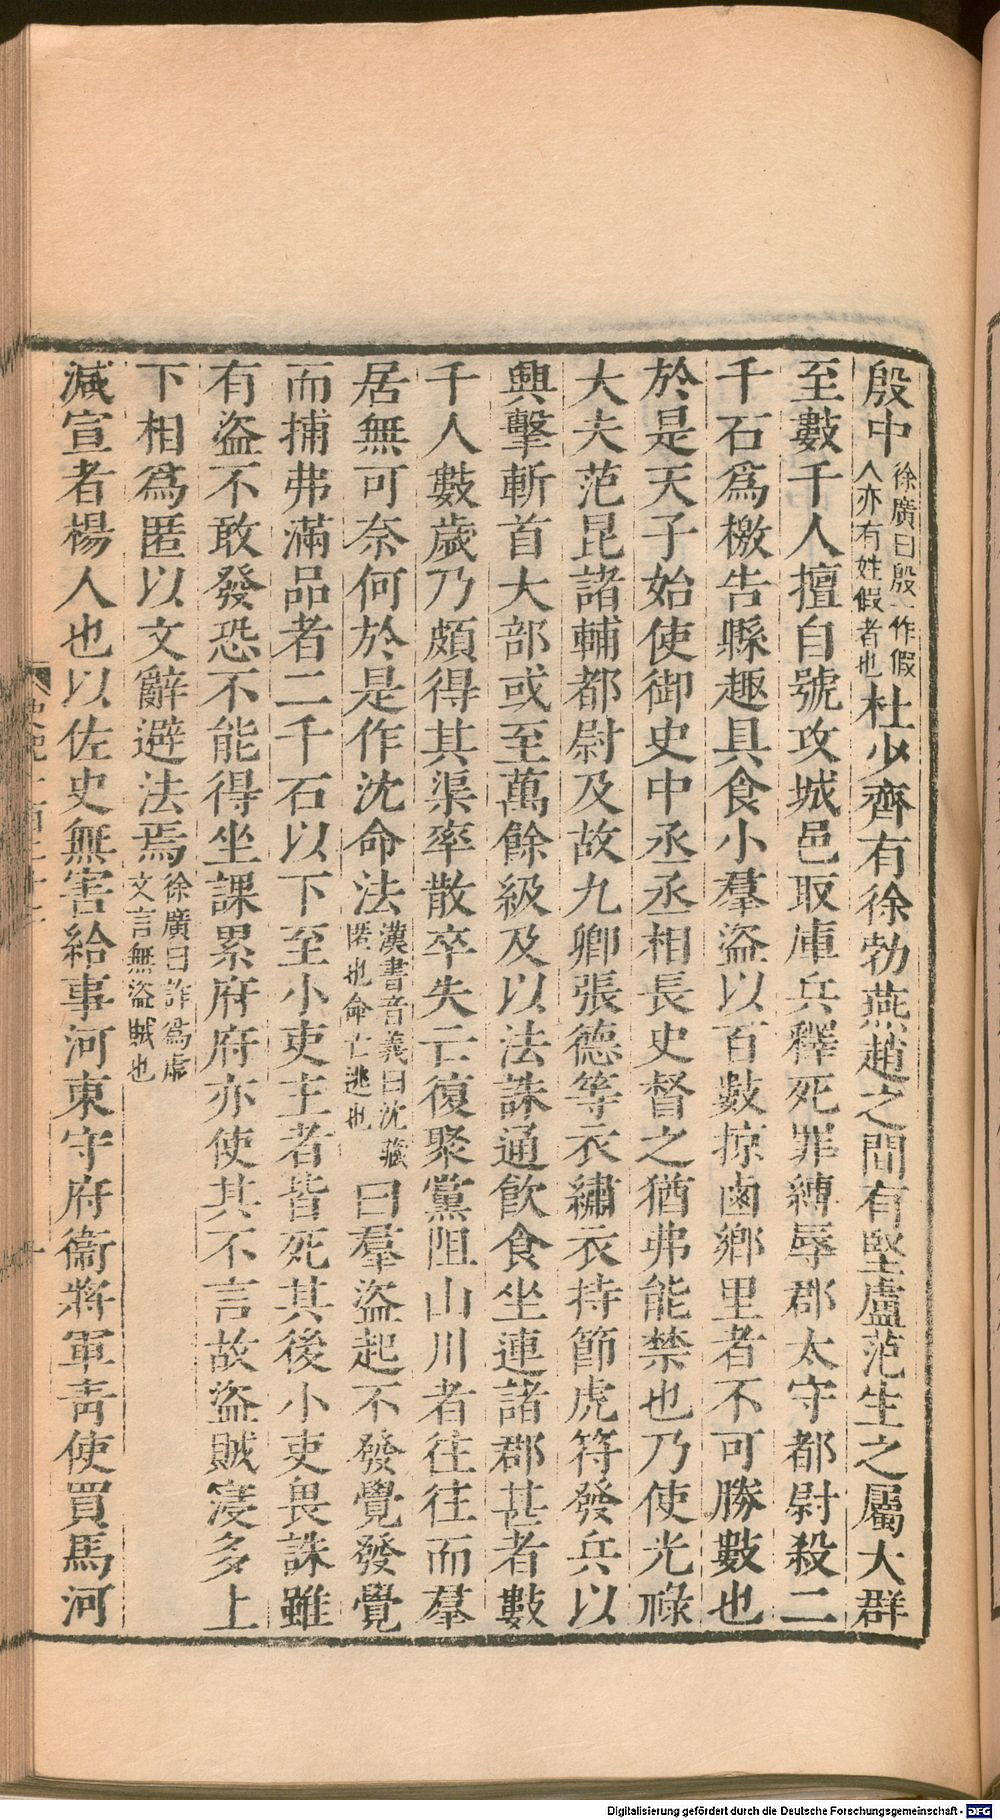 殷中徐廣曰殷一作假人亦有姓假者也杜少齊有徐勃燕趙之間有堅盧范生之屬大群
至數千人擅自號攻城邑取庫兵釋死罪縛辱郡太守都尉殺二
千石爲檄告縣趣具食小羣盜以百數掠鹵鄉里者不可勝數也
於是天子始使御史中丞丞相長史督之猶弗能禁也乃使光祿
大夫范昆諸輔都尉及故九卿張德等衣繡衣持節虎符發兵以
興擊斬首大部或至萬餘級及以法誅通飲食坐連諸郡甚者數
千人數歲乃頗得其渠率散卒失亡復聚黨阻山川者往往而羣
居無可奈何於是作沈命法漢書音義曰沈藏匿也命亡逃也曰羣盜起不發覺發覺
而捕弗滿品者二千石以下至小吏主者皆死其後小吏畏誅雖
有盜不敢發恐不能得坐課累府府亦使其不言故盜賊寖多上
下相爲匿以文辭避法焉徐廣曰詐爲虛文言無盜賊也
減宣者楊人也以佐史無害給事河東守府衞將軍靑使買馬河
Digitalisierung gefördert durch die Deutsche Forschungsgemeinschaft - DFG